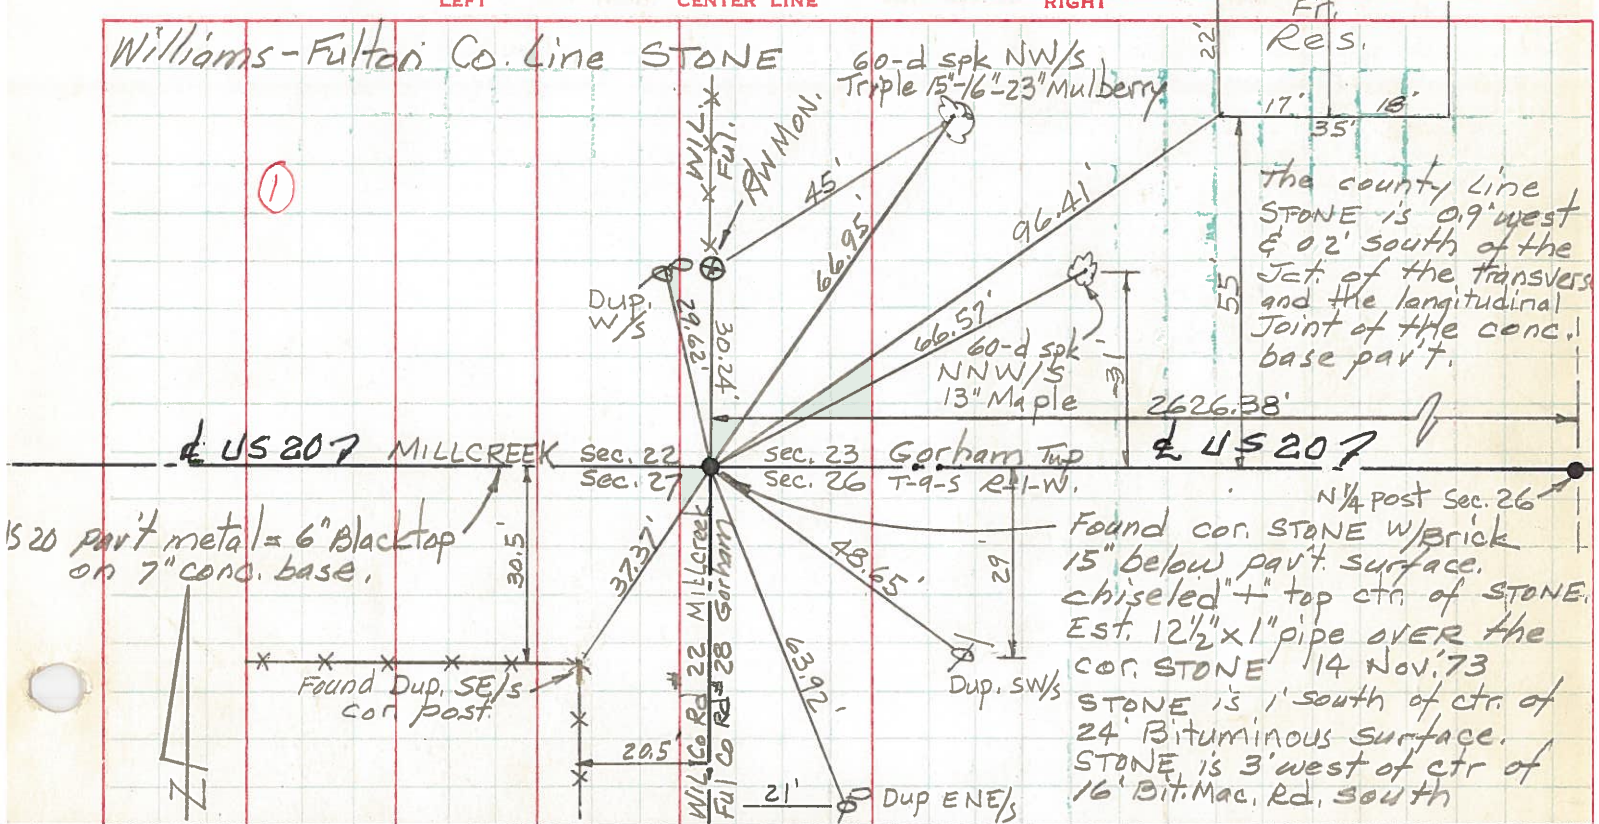 LEFT
CENTER LINE
RIGHT
Williams-Fulton Co. Line STONE
60-d spk NW/S
Triple 15"-16"-23" Mulberry
Fr.
Res.
22'
17'
18'
35'
WIL.
Ful.
R/W MON.
1
45'
66.95'
96.41'
66.57'
Dup.
W/s
29.62'
30.24'
60-d spk
NNW/S
13" Maple
31'
55'
The county Line
STONE is 0.9' west
& 0.2' south of the
Jct. of the transvers
and the longitudinal
Joint of the conc.
base pav't.
2626.38'
℄ US 207
MILLCREEK
Sec. 22
Sec. 23
Gorham Twp
℄ US 207
Sec. 27
Sec. 26
T-9-S R-1-W.
N¼ post Sec. 26
US 20 pav't metal = 6" Blacktop
on 7" conc. base.
30.5'
37.37'
48.65'
29'
63.92'
Found cor. STONE W/Brick
15" below pav't. surface.
chiseled "+" top ctr. of STONE.
Est. 12½" x 1" pipe OVER the
cor. STONE 14 Nov. '73
STONE is 1' south of ctr. of
24' Bituminous surface.
STONE is 3' west of ctr of
16' Bit. Mac. Rd. south
Found Dup. SE/s
cor. post.
Dup. SW/s
20.5'
WIL. Co Rd 22 Millcreek
Ful Co Rd #28 Gorham
21'
Dup ENE/s
N